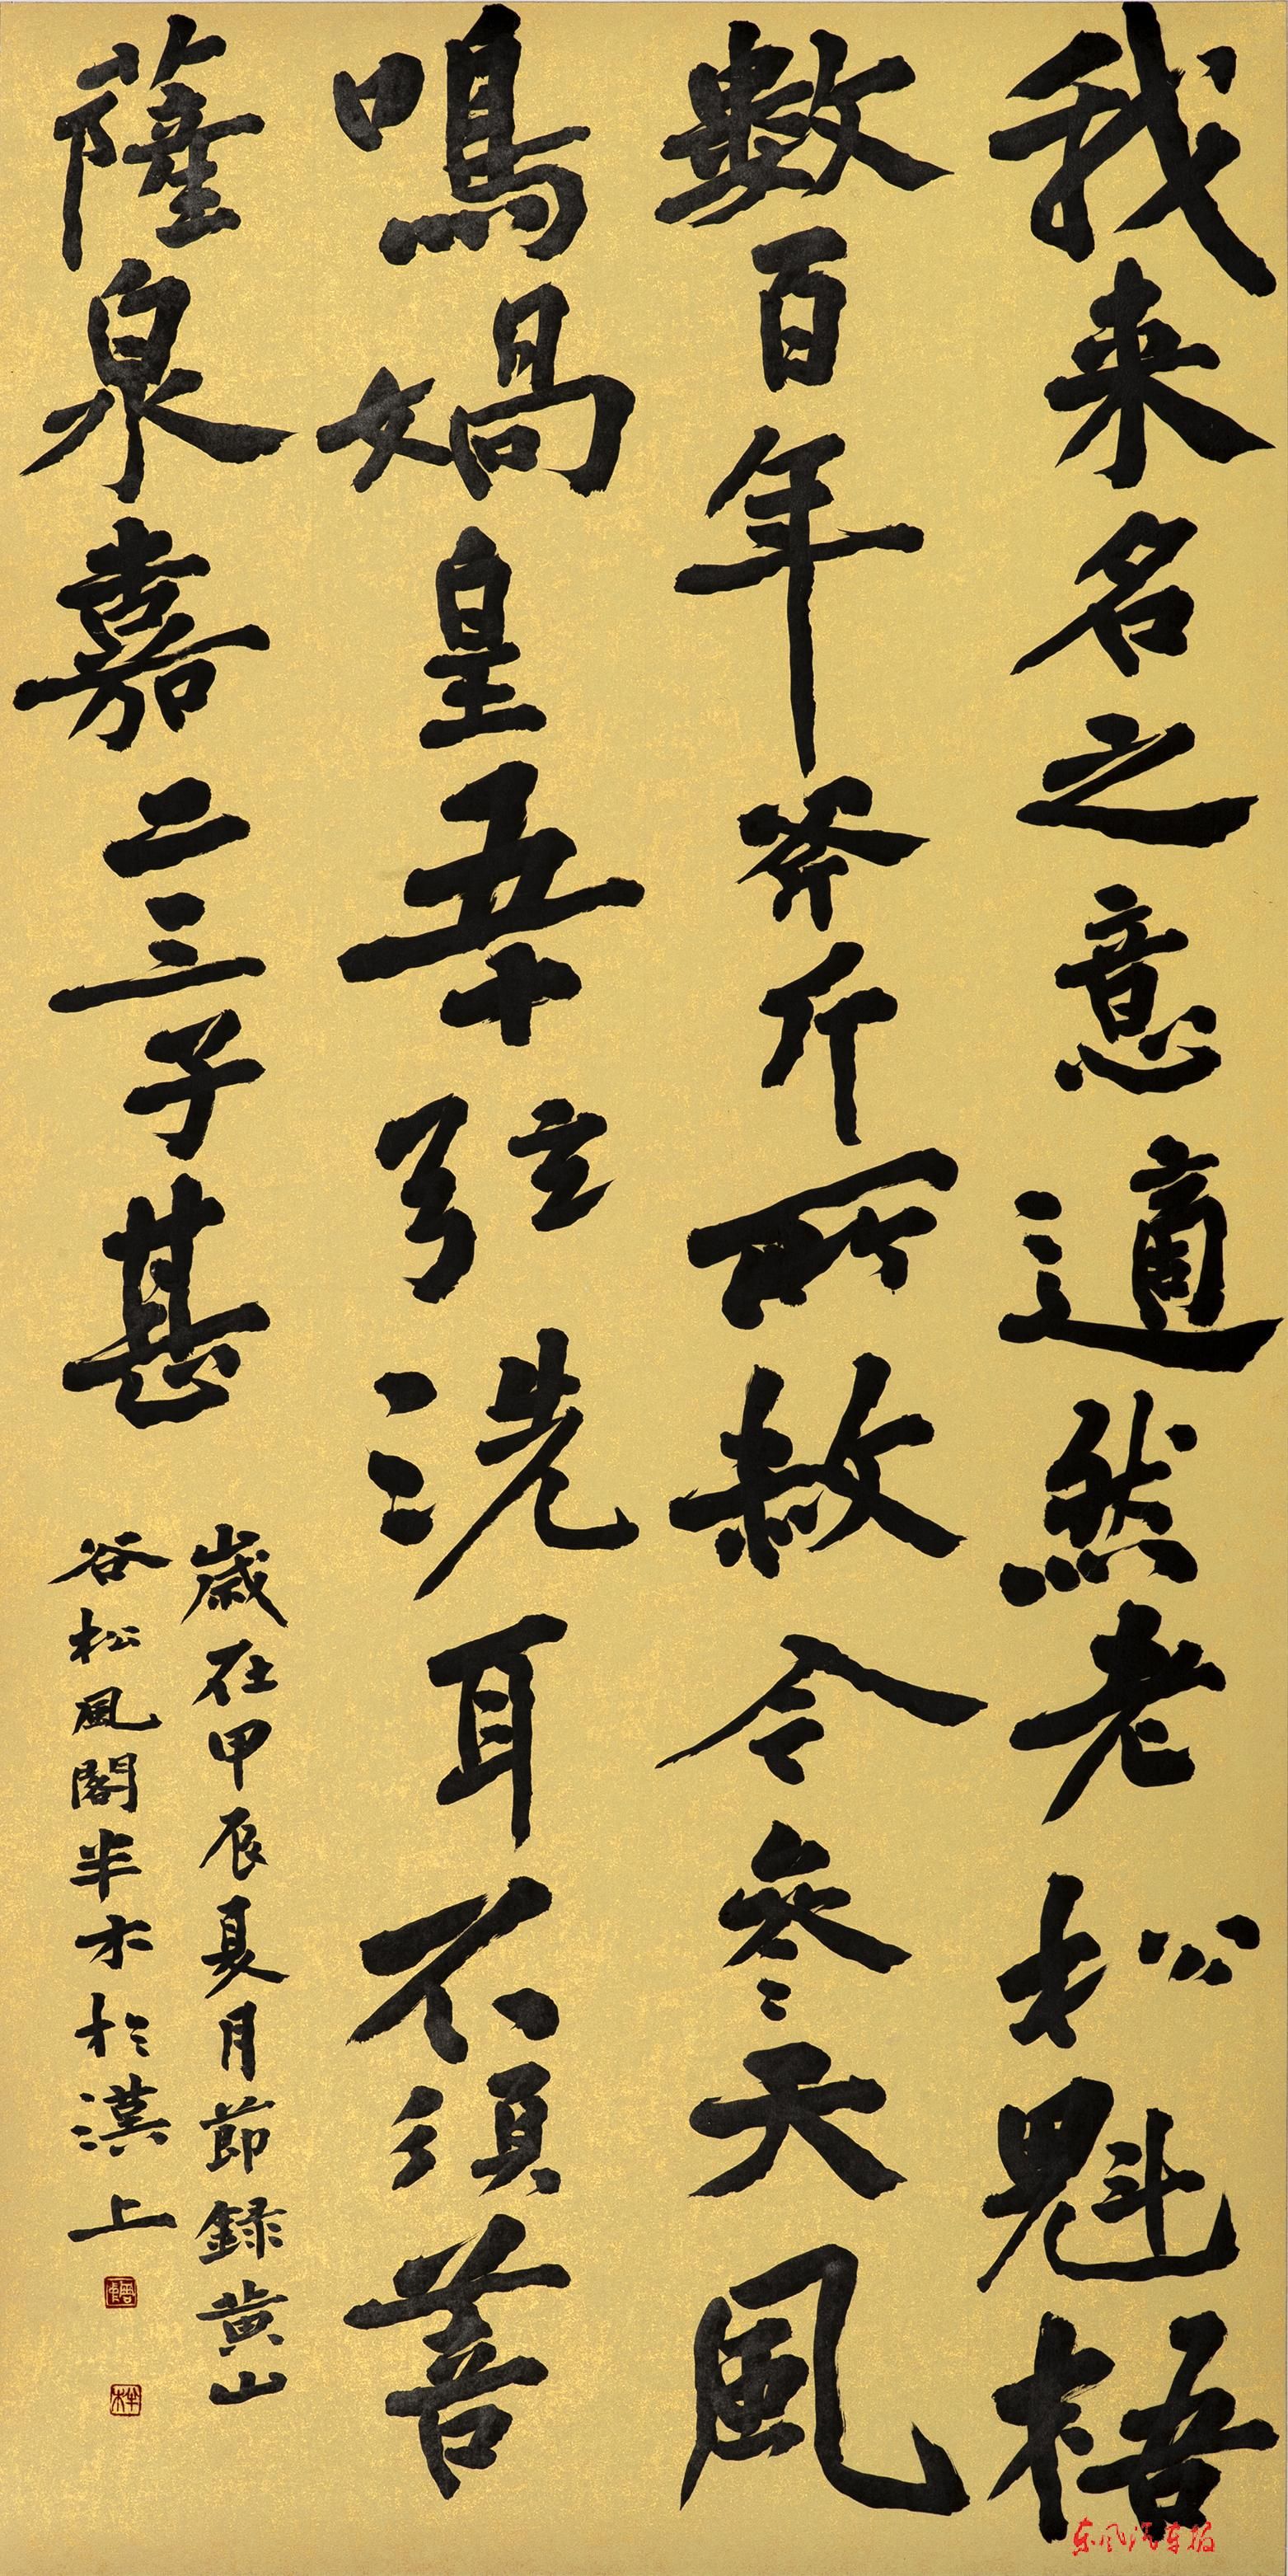 我来名之意適然老松魁梧
數百年斧斤所赦今參天風
鳴媧皇五十弦洗耳不須菩
薩泉嘉二三子甚
歲在甲辰夏月節録黄山
谷松風閣半木於漢上
东风汽车报